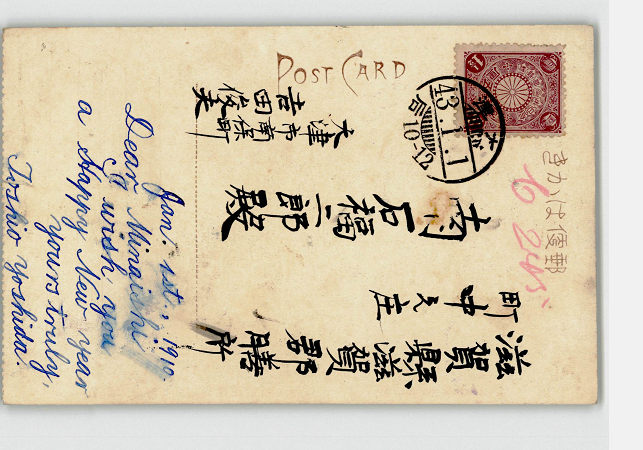 POST CARD
きかは便郵
43.1.1
10-12
滋賀縣滋賀郡膳所
町中之庄
南石福二郎殿
大津市南保町
吉田俊夫
Jan. 1st., 1910.
Dear Minaishi
I wish you
a Happy New Year
yours truly,
Toshio Yoshida.